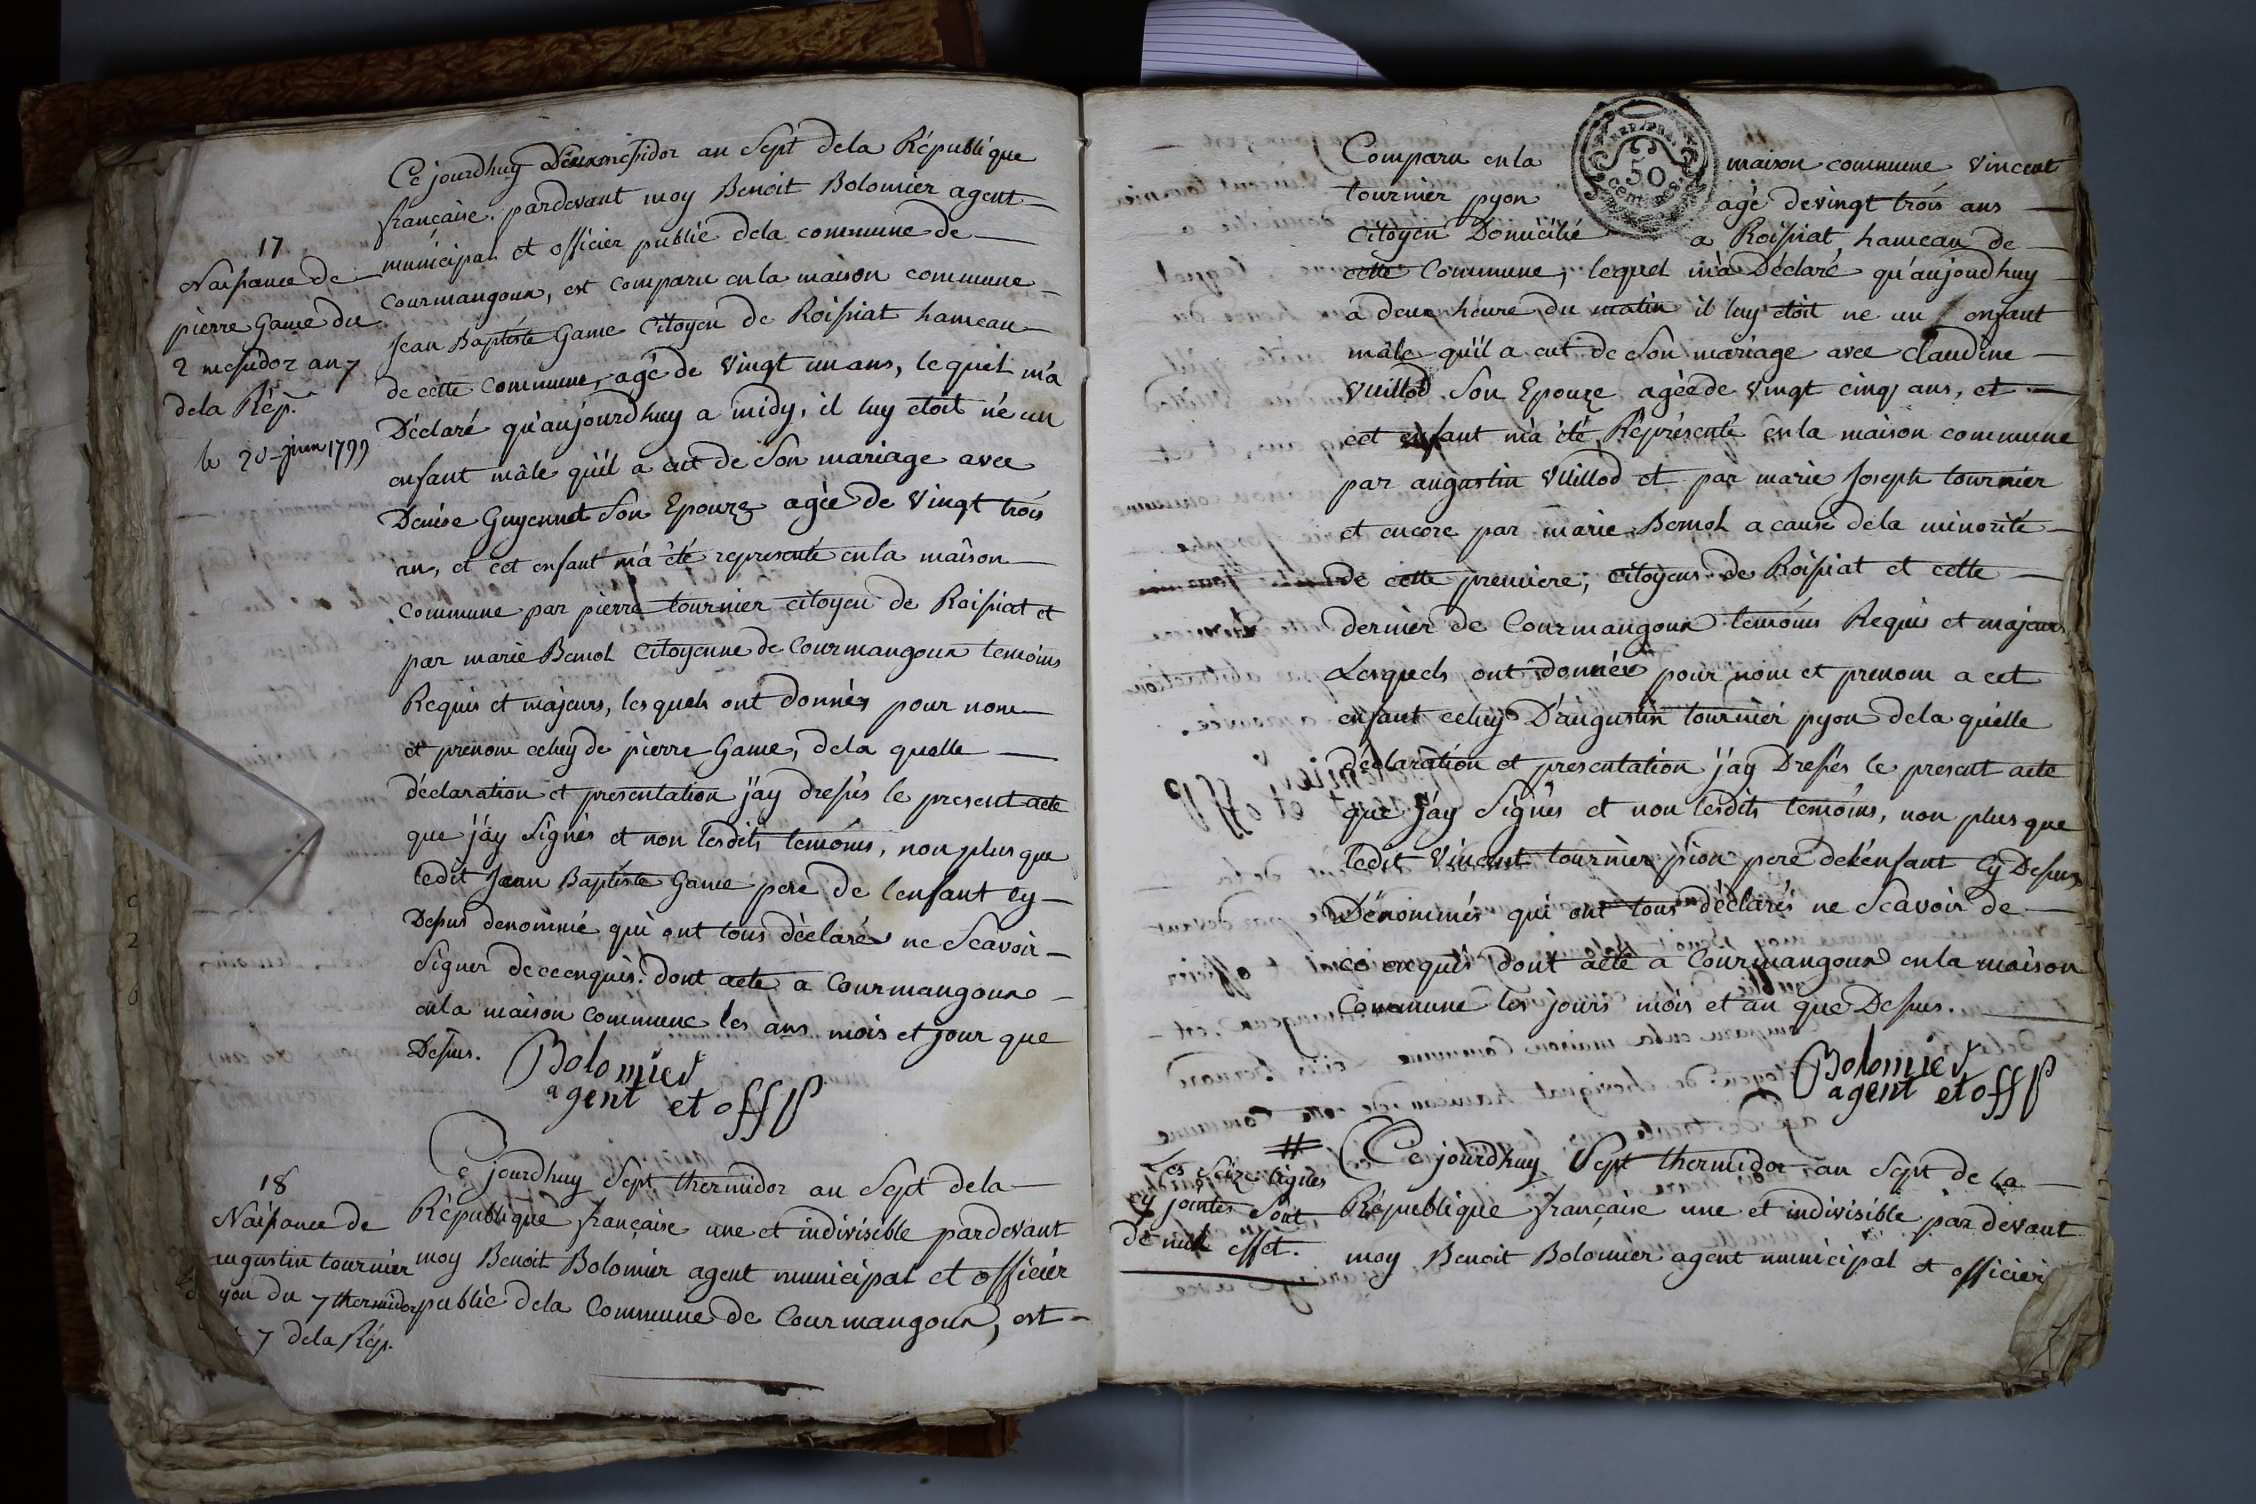 17
Naissance de
pierre Game du
2 messidor an 7
dela Rép.
le 20 juin 1799
Ce jourdhuy Deux messidor an Sept dela République
française. pardevant moy Benoit Bolomier agent
municipal et officier public dela commune de
Courmangoux, est comparu enla maison commune
Jean Baptiste Game Citoyen de Roissiat hameau
de cette commune, agé de Vingt un ans, lequel m'a
Déclaré qu'aujourdhuy a midy, il luy etoit né un
enfant mâle qu'il a eut de Son mariage avec
Denise Guyennet Son Epouze agée de Vingt trois
an, et cet enfant m'a été representé enla maison
commune par pierre tournier citoyen de Roissiat et
par marie Bemol Citoyenne de Courmangoux temoins
Requis et majeurs, lesquels ont donnés pour nom
et prenom celuy de pierre Game, dela quelle
déclaration et presentation j'ay dressés le present acte
que j'ay Signés et non lesdits temoins, non plus que
ledit Jean Baptiste Game pere de lenfant cy
Dessus denommé qui ont tous déclarés ne Scavoir
Signer de ce enquis. dont acte a Courmangoux
enla maison commune les ans mois et jour que
Dessus.
Bolomier
agent et off P
18
Naissance de
augustin tournier
yon du 7 thermidor
7 dela Rép.
Ce jourdhuy Sept thermidor an Sept dela
République française une et indivisible pardevant
moy Benoit Bolomier agent municipal et officier
public dela Commune de Courmangoux, est
Comparu enla maison commune Vincent
tournier pyon agé devingt trois ans
Citoyen Domicilié a Roissiat hameau de
cette Commune, lequel m'a Déclaré qu'aujourdhuy
a deux heure du matin il luy etoit ne un enfant
mâle qu'il a eut de Son mariage avec claudine
Vuillod Son Epouze agée de Vingt cinq ans, et
cet enfant m'a été Représenté enla maison commune
par augustin Vuillod et par marie Joseph tournier
et encore par marie Bemol a cause dela minorité
de cette premiere, citoyens de Roissiat et cette
dernier de Courmangoux temoins Requis et majeurs
Lesquels ont donnés pour nom et prenom a cet
enfant celuy D'augustin tournier pyon dela quelle
déclaration et presentation j'ay Dressés le present acte
que j'ay Signés et non lesdits temoins, non plus que
ledit Vincent tournier pion pere de lénfant cy Dessus
Dénommés qui ont tous déclarés ne Scavoir de
ce enquis dont acte a Courmangoux enla maison
Commune les jours mois et an que Dessus.
Bolomier
agent et off P
REP. FRA
50
CENTIMES
#
Les Seize lignes
cy jointes Sont
de nul effet.
Ce jourdhuy Sept thermidor an Sept de la
République française une et indivisible par devant
moy Benoit Bolomier agent municipal et officier